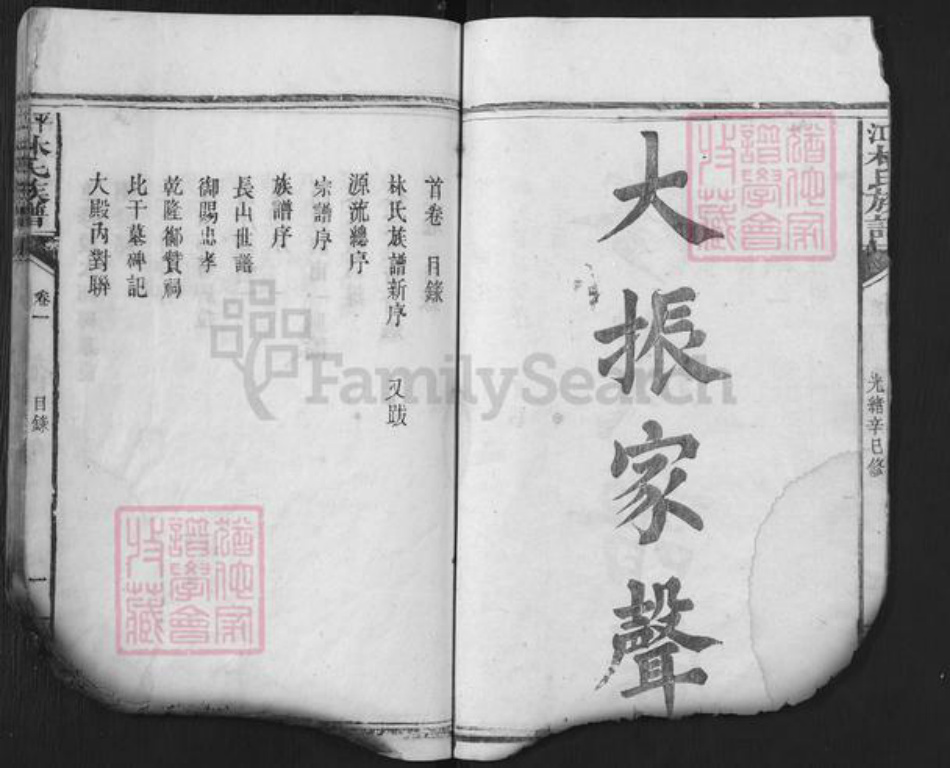 江林氏族譜
光緒辛巳修
大振家聲
首卷 目錄
林氏族譜新序 又跋
源流總序
宗譜序
族譜序
長山世譜
御賜忠孝
乾隆御贊祠
比干墓碑記
大殿內對聯
平林氏族譜
卷一
目錄
一
譜學會
收藏
譜學會
收藏
FamilySearch